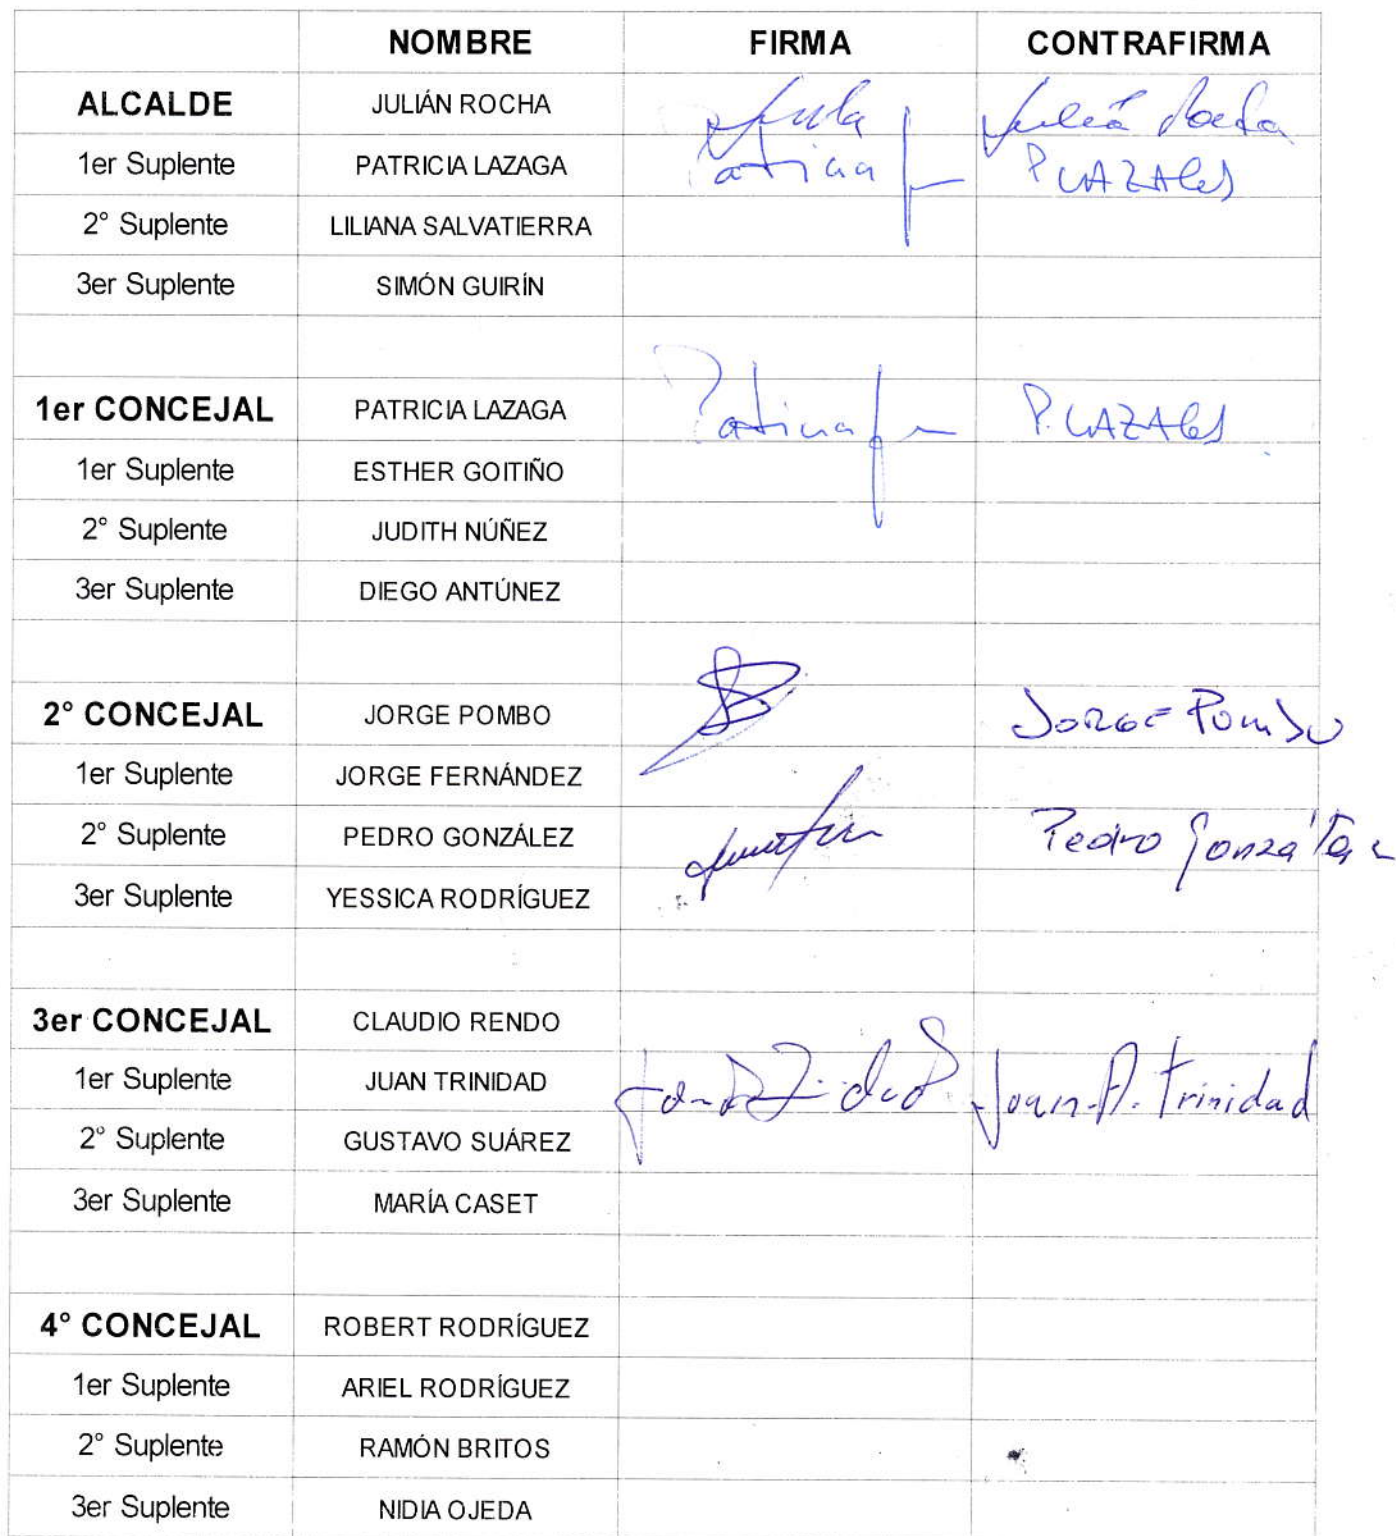 NOMBRE FIRMA CONTRAFIRMA
ALCALDE JULIÁN ROCHA Julián Rocha
1er Suplente PATRICIA LAZAGA Patricia P. LAZAGA
2° Suplente LILIANA SALVATIERRA
3er Suplente SIMÓN GUIRÍN
1er CONCEJAL PATRICIA LAZAGA Patricia P. LAZAGA
1er Suplente ESTHER GOITIÑO
2° Suplente JUDITH NÚÑEZ
3er Suplente DIEGO ANTÚNEZ
2° CONCEJAL JORGE POMBO JORGE POMBO
1er Suplente JORGE FERNÁNDEZ
2° Suplente PEDRO GONZÁLEZ Pedro González
3er Suplente YESSICA RODRÍGUEZ
3er CONCEJAL CLAUDIO RENDO
1er Suplente JUAN TRINIDAD Juan A. Trinidad
2° Suplente GUSTAVO SUÁREZ
3er Suplente MARÍA CASET
4° CONCEJAL ROBERT RODRÍGUEZ
1er Suplente ARIEL RODRÍGUEZ
2° Suplente RAMÓN BRITOS
3er Suplente NIDIA OJEDA